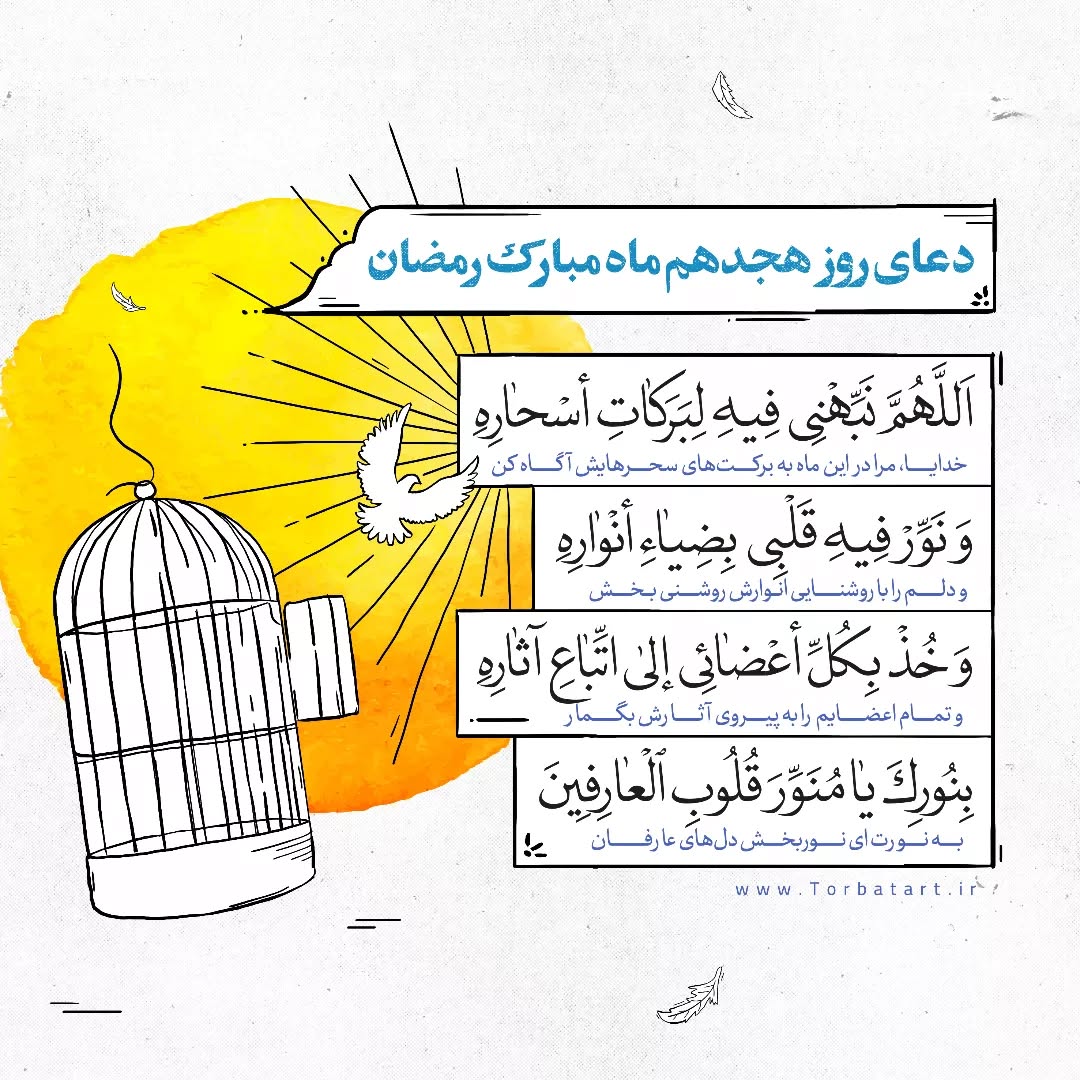 دعای روز هجدهم ماه مبارک رمضان
اَللَّهُمَّ نَبِّهْنِی فِیهِ لِبَرَکَاتِ أَسْحارِهِ
خدایا، مرا در این ماه به برکت‌های سحرهایش آگاه کن
وَ نَوِّرْ فِیهِ قَلْبِی بِضِیاءِ أَنْوارِهِ
و دلم را با روشنایی انوارش روشنی بخش
وَ خُذْ بِکُلِّ أَعْضائِی إِلیٰ اتِّبَاعِ آثارِهِ
و تمام اعضایم را به پیروی آثارش بگمار
بِنُورِكَ یا مُنَوِّرَ قُلُوبِ الْعارِفِینَ
به نورت ای نوربخش دل‌های عارفان
www.Torbatart.ir